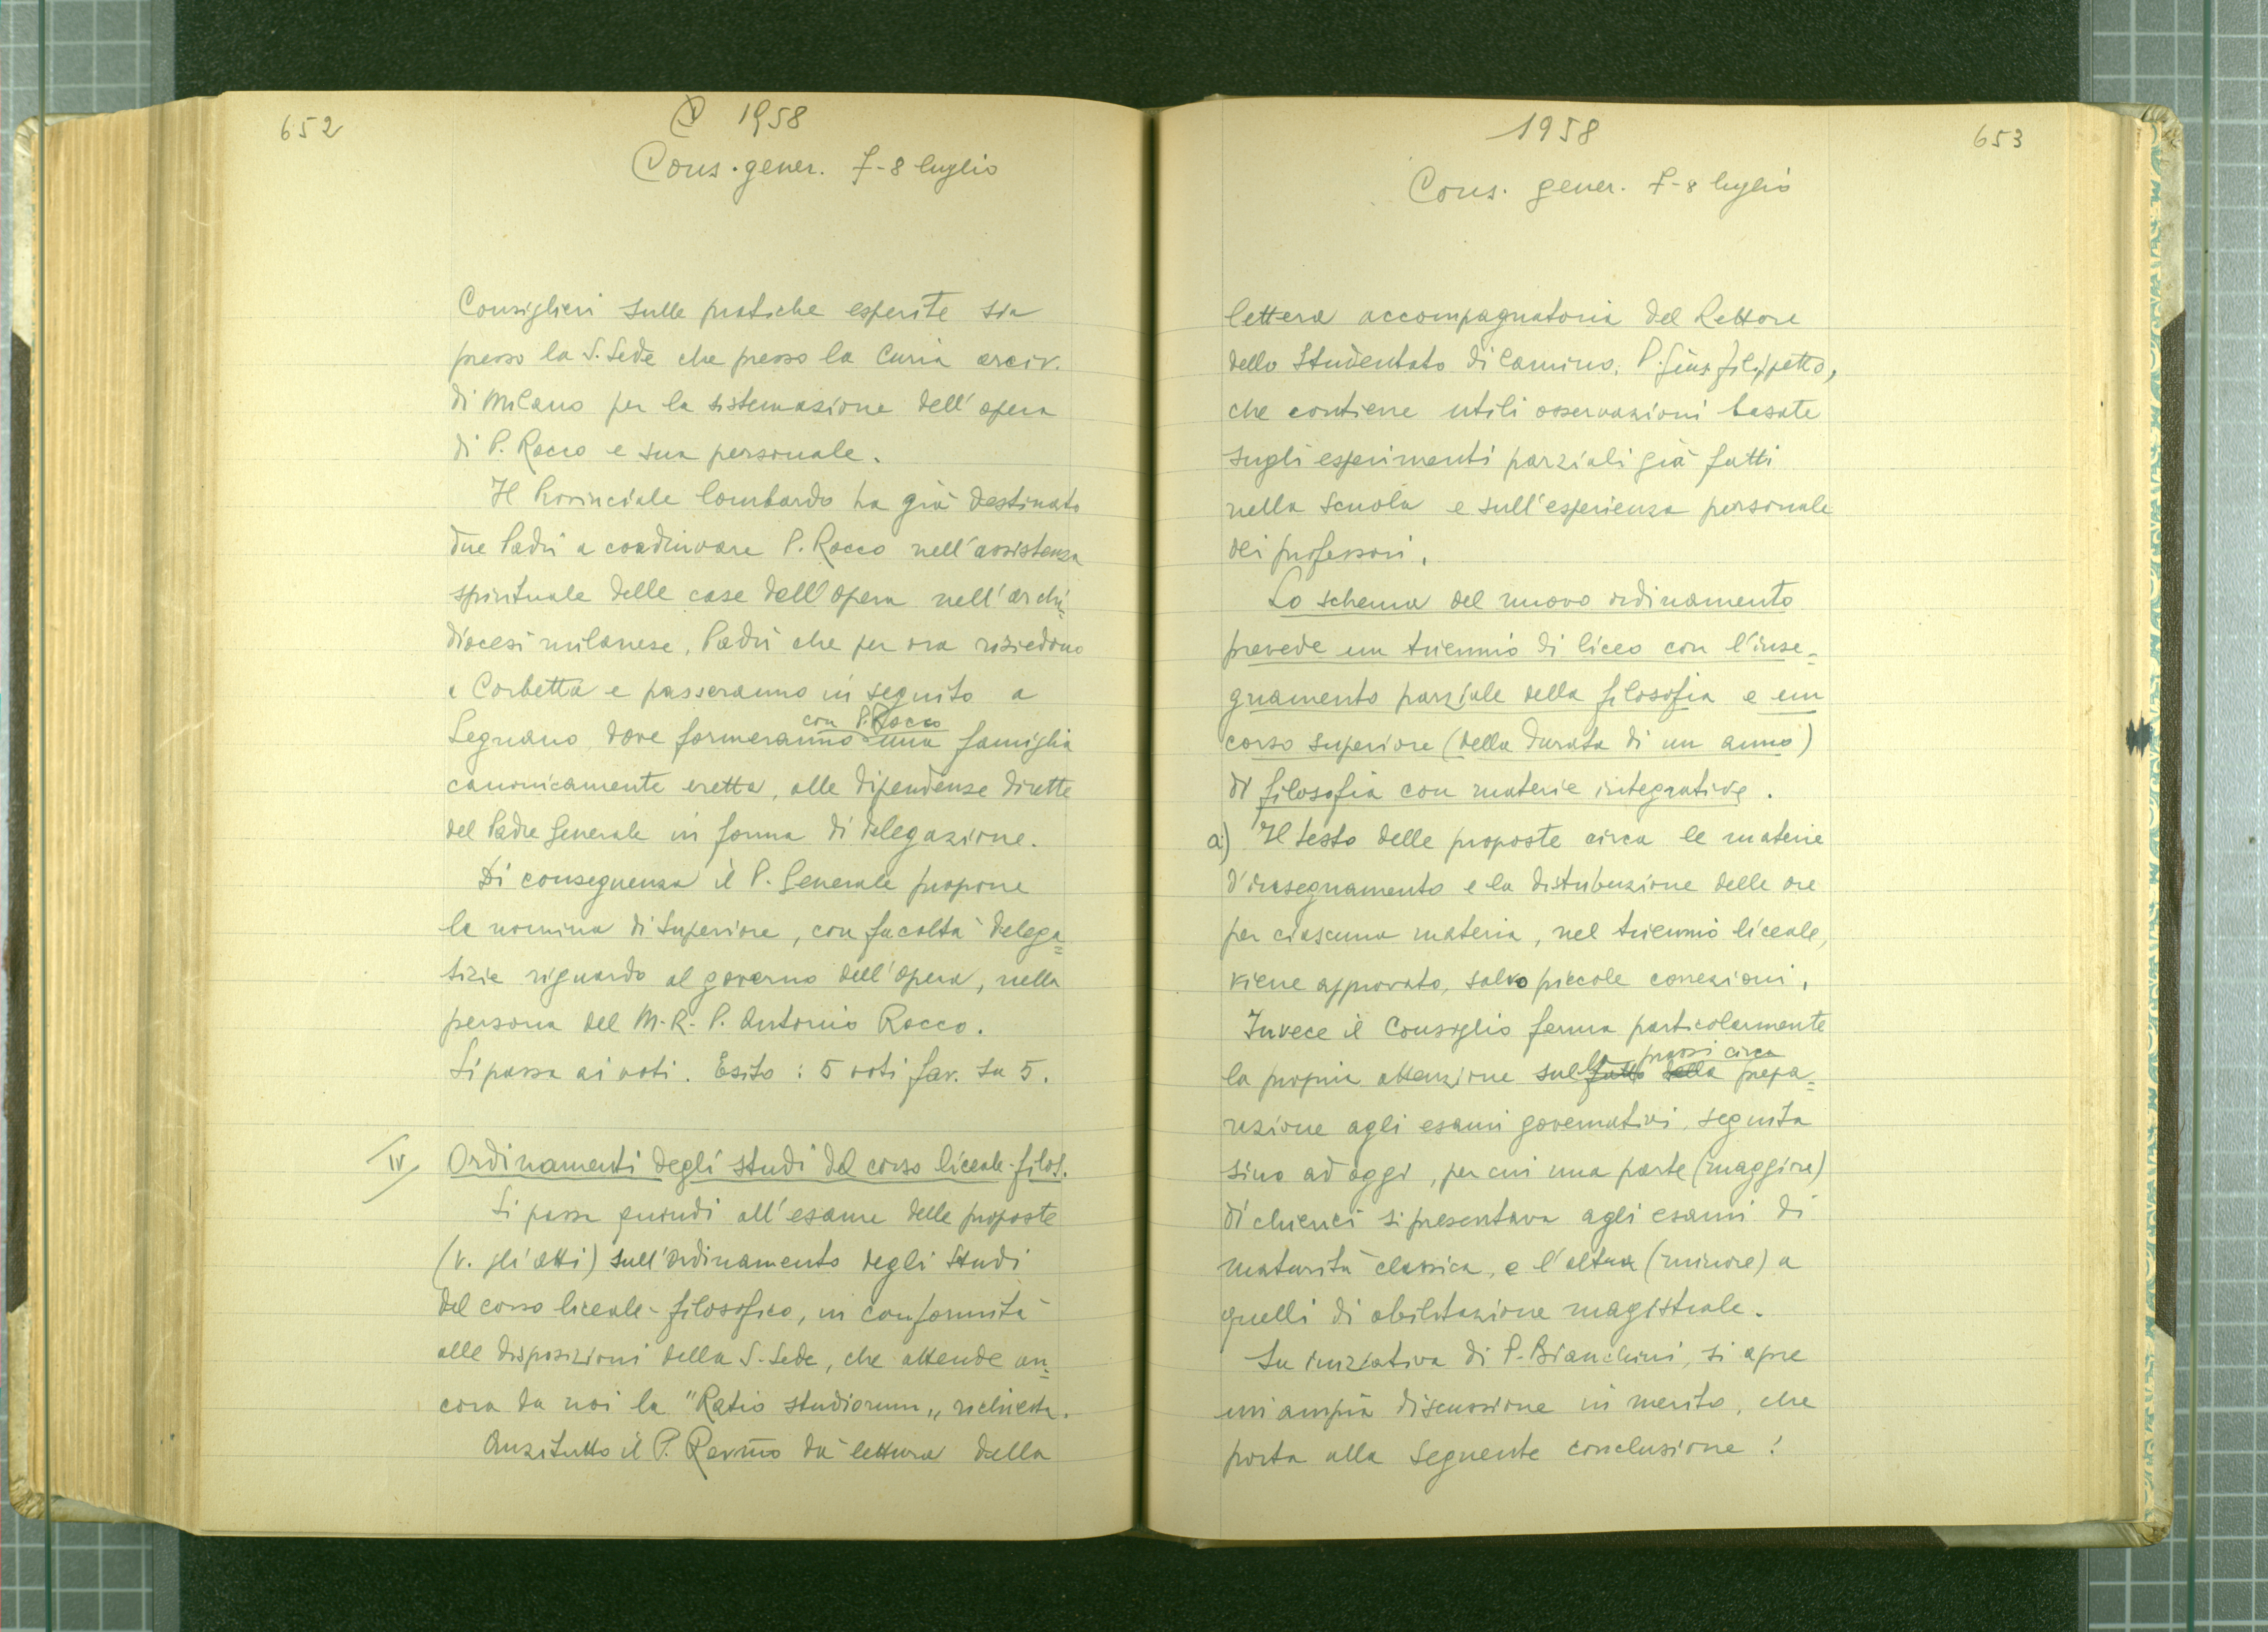 652
1958
Cons. gener. 7-8 luglio
Consiglieri sulle pratiche esperite sia
presso la S. Sede che presso la Curia arciv.
di Milano per la sistemazione dell'opera
di P. Rocco e sua personale.
Il Provinciale lombardo ha già destinato
due Padri a coadiuvare P. Rocco nell'assistenza
spirituale delle case dell'Opera nell'archi=
diocesi milanese, Padri che per ora risiedono
a Corbetta e passeranno in seguito a
con P. Rocco
Legnano, dove formeranno una famiglia
canonicamente eretta, alle dipendenze dirette
del Padre Generale in forma di delegazione.
Di conseguenza il P. Generale propone
la nomina di Superiore, con facoltà delega=
tizie riguardo al governo dell'Opera, nella
persona del M. R. P. Antonio Rocco.
Si passa ai voti. Esito: 5 voti fav. su 5.
IV Ordinamenti degli studi del corso liceale-filos.
Si passa quindi all'esame delle proposte
(v. gli atti) sull'ordinamento degli studi
del corso liceale-filosofico, in conformità
alle disposizioni della S. Sede, che attende an=
cora da noi la "Ratio studiorum" richiesta.
Anzitutto il P. Rev.mo dà lettura della
1958
653
Cons. gener. 7-8 luglio
lettera accompagnatoria del Rettore
dello Studentato di Camino, P. Gius. Filippetto,
che contiene utili osservazioni basate
sugli esperimenti parziali già fatti
nella scuola e sull'esperienza personale
dei professori.
Lo schema del nuovo ordinamento
prevede un triennio di liceo con l'inse=
gnamento parziale della filosofia e un
corso superiore (della durata di un anno)
di filosofia con materie integrative.
a) Il testo delle proposte circa le materie
d'insegnamento e la distribuzione delle ore
per ciascuna materia, nel triennio liceale,
viene approvato, salvo piccole correzioni.
Invece il Consiglio ferma particolarmente
la prassi circa
la propria attenzione sul fatto della prepa=
razione agli esami governativi, seguita
sino ad oggi, per cui una parte (maggiore)
di chierici si presentava agli esami di
maturità classica, e l'altra (minore) a
quelli di abilitazione magistrale.
Su iniziativa di P. Bianchini, si apre
un'ampia discussione in merito, che
porta alla seguente conclusione: